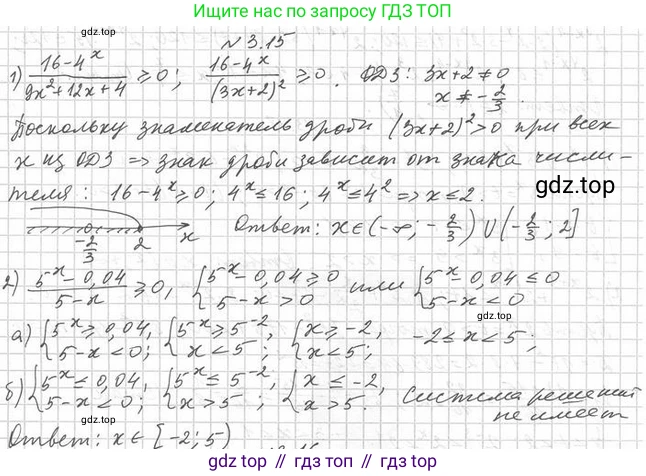 Ищите нас по запросу ГДЗ ТОП
№3.15
1) (16-4^x)/(9x²+12x+4) ⩾ 0; (16-4^x)/(3x+2)² ⩾ 0. ОДЗ: 3x+2≠0
x ≠ -2/3.
Поскольку знаменатель дроби (3x+2)²>0 при всех
x из ОДЗ => знак дроби зависит от знака числи-
теля: 16-4^x⩾0; 4^x⩽16; 4^x⩽4² => x⩽2.
gdz.top
-2/3 2 x Ответ: x∈(-∞; -2/3)∪(-2/3; 2]
2) (5^x-0,04)/(5-x) ⩾ 0, {5^x-0,04⩾0 5-x>0 или {5^x-0,04⩽0 5-x<0
а) {5^x⩾0,04, 5-x<0; {5^x⩾5^-2, x<5; {x⩾-2, x<5; -2⩽x<5;
б) {5^x⩽0,04, 5-x<0; {5^x⩽5^-2, x>5; {x⩽-2, x>5. Система решений
не имеет
gdz.top
Ответ: x∈[-2;5)
gdz.top